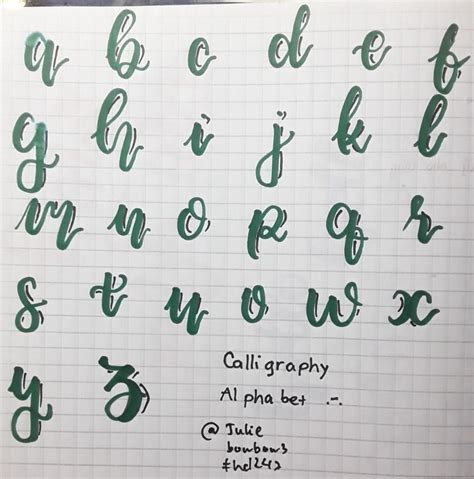 a b c d e f
g h i j k l
m n o p q r
s t u v w x
y z
Calligraphy
Alphabet .-.
@ Julie
bowbow3
#hd242